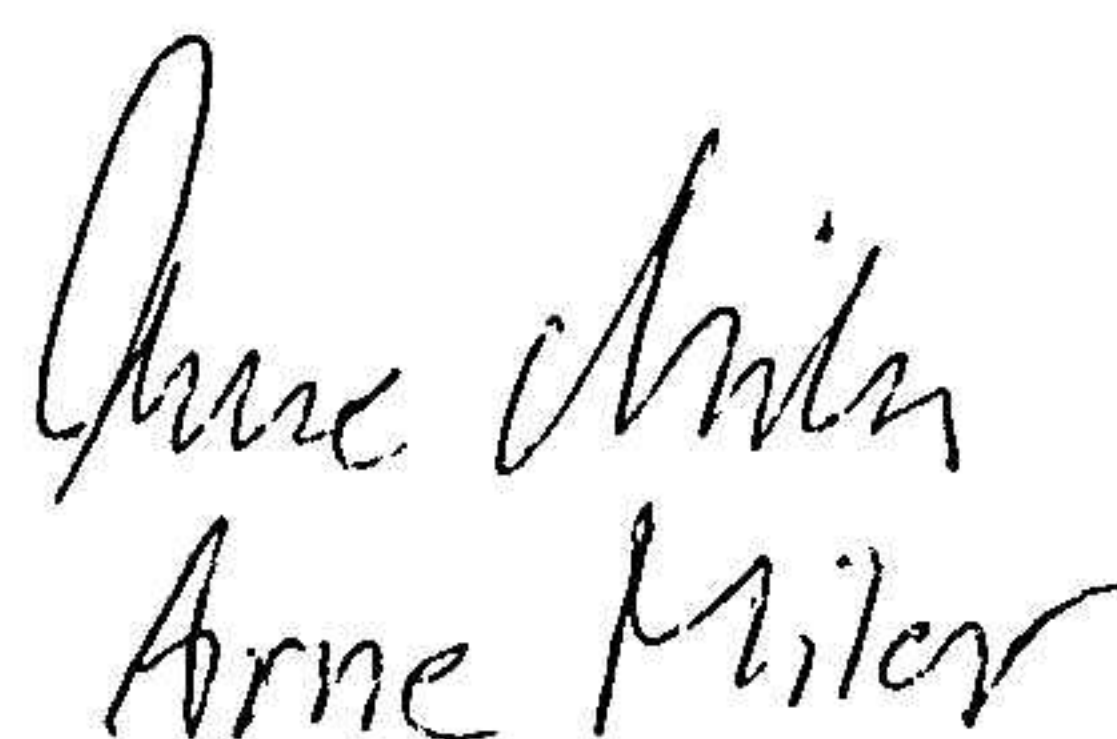 Arne Miler
Arne Miler